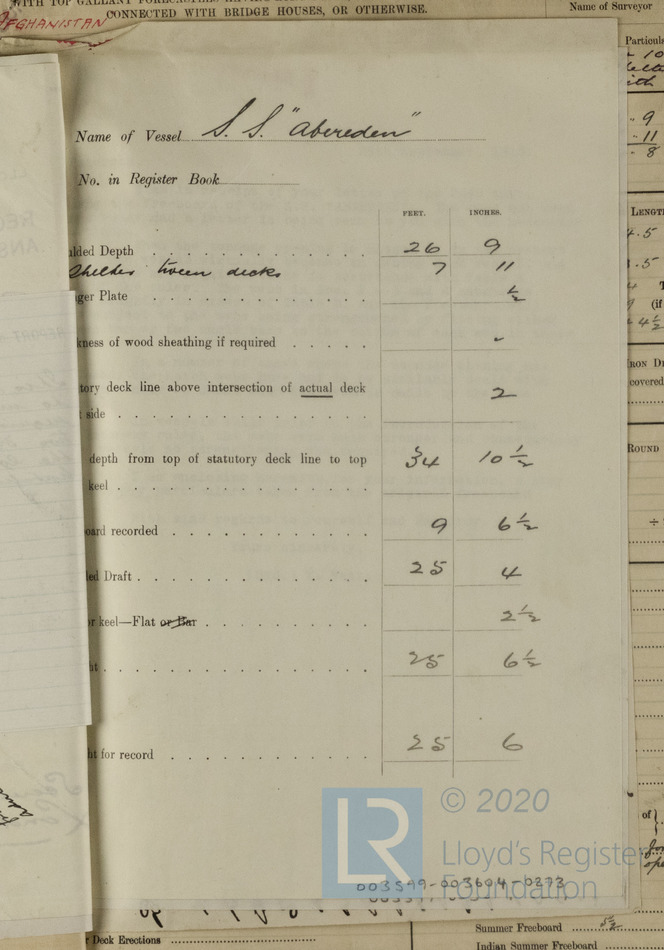 CONNECTED WITH BRIDGE HOUSES, OR OTHERWISE.
Name of Surveyor
AFGHANISTAN
Particula
Name of Vessel S. S. "Abereden"
No. in Register Book
FEET. INCHES.
lded Depth 26 9
Shelter tween decks 7 11
ger Plate ½
kness of wood sheathing if required -
tory deck line above intersection of actual deck
side 2
depth from top of statutory deck line to top
keel 34 10 ½
oard recorded 9 6 ½
ed Draft 25 4
r keel—Flat or Bar 2 ½
ht 25 6 ½
ht for record 25 6
9
11
8
LENGT
4.5
.5
(if
4 ½
IRON DE
covered
ROUND
÷
of
© 2020
LR
Lloyd's Register
Foundation
003599-003604-0273
r Deck Erections
Summer Freeboard 5½
Indian Summer Freeboard